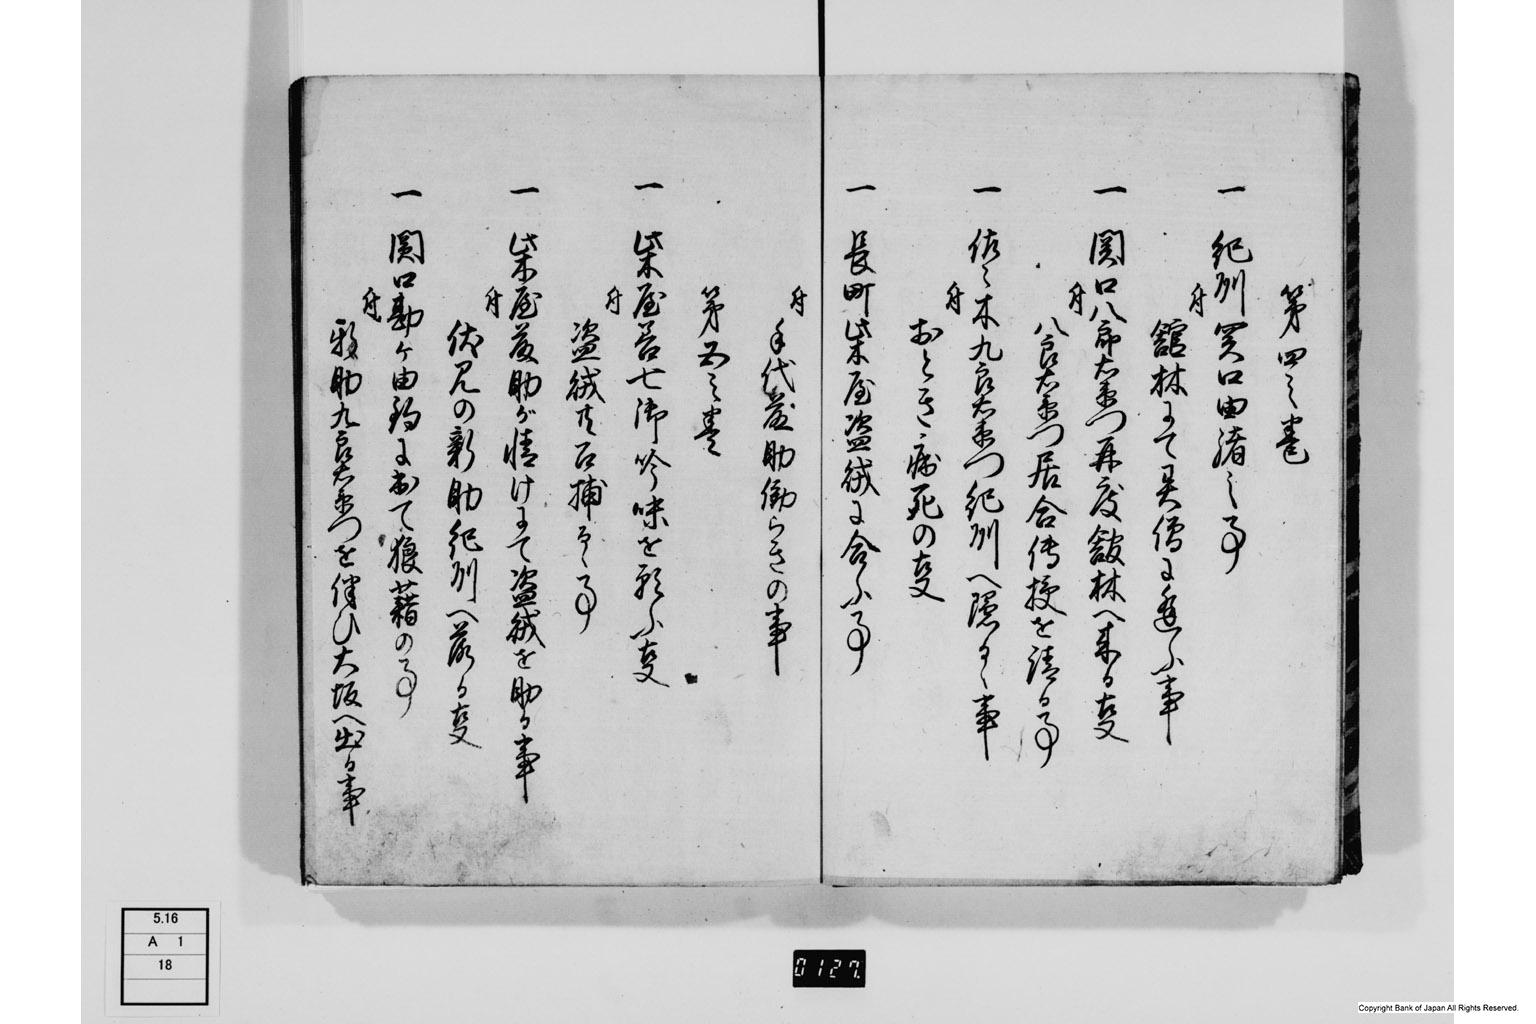 第四之巻
一 紀州関口由緒之事
并 舘林にて異僧に逢ふ事
一 関口八郎右衛門再度舘林へ来る事
并 八郎右衛門居合伝授を請る事
一 佐々木九郎右衛門紀州へ隠るゝ事
并 おとき病死の事
一 長町柴屋盗賊に合ふ事
并 手代藤助働らきの事
第五之巻
一 柴屋善七御吟味を願ふ事
并 盗賊共召捕るゝ事
一 柴屋藤助が情けにて盗賊を助る事
并 伏見の新助紀州へ落る事
一 関口勘ヶ由䑓に於て狼藉の事
并 新助九郎右衛門を伴ひ大坂へ出る事
5.16
A 1
18
0127
Copyright Bank of Japan All Rights Reserved.